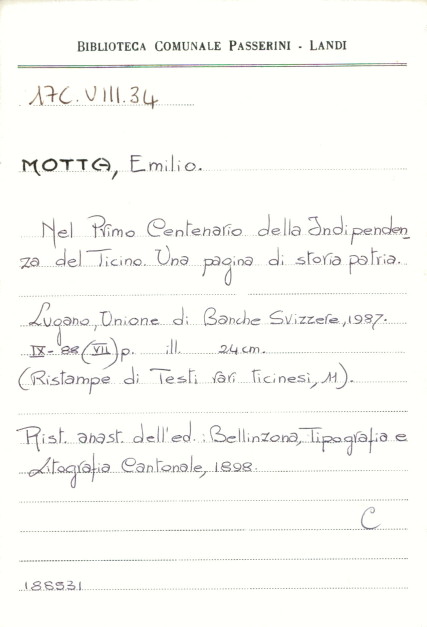 BIBLIOTECA COMUNALE PASSERINI - LANDI
17C.VIII.34
MOTTA, Emilio.
Nel Primo Centenario della Indipenden
za del Ticino. Una pagina di storia patria.
Lugano, Unione di Banche Svizzere, 1987.
IX-88 (VII) p. ill. 24 cm.
(Ristampe di Testi rari ticinesi, 11).
Rist. anast. dell'ed.: Bellinzona, Tipografia e
Litografia Cantonale, 1898.
C